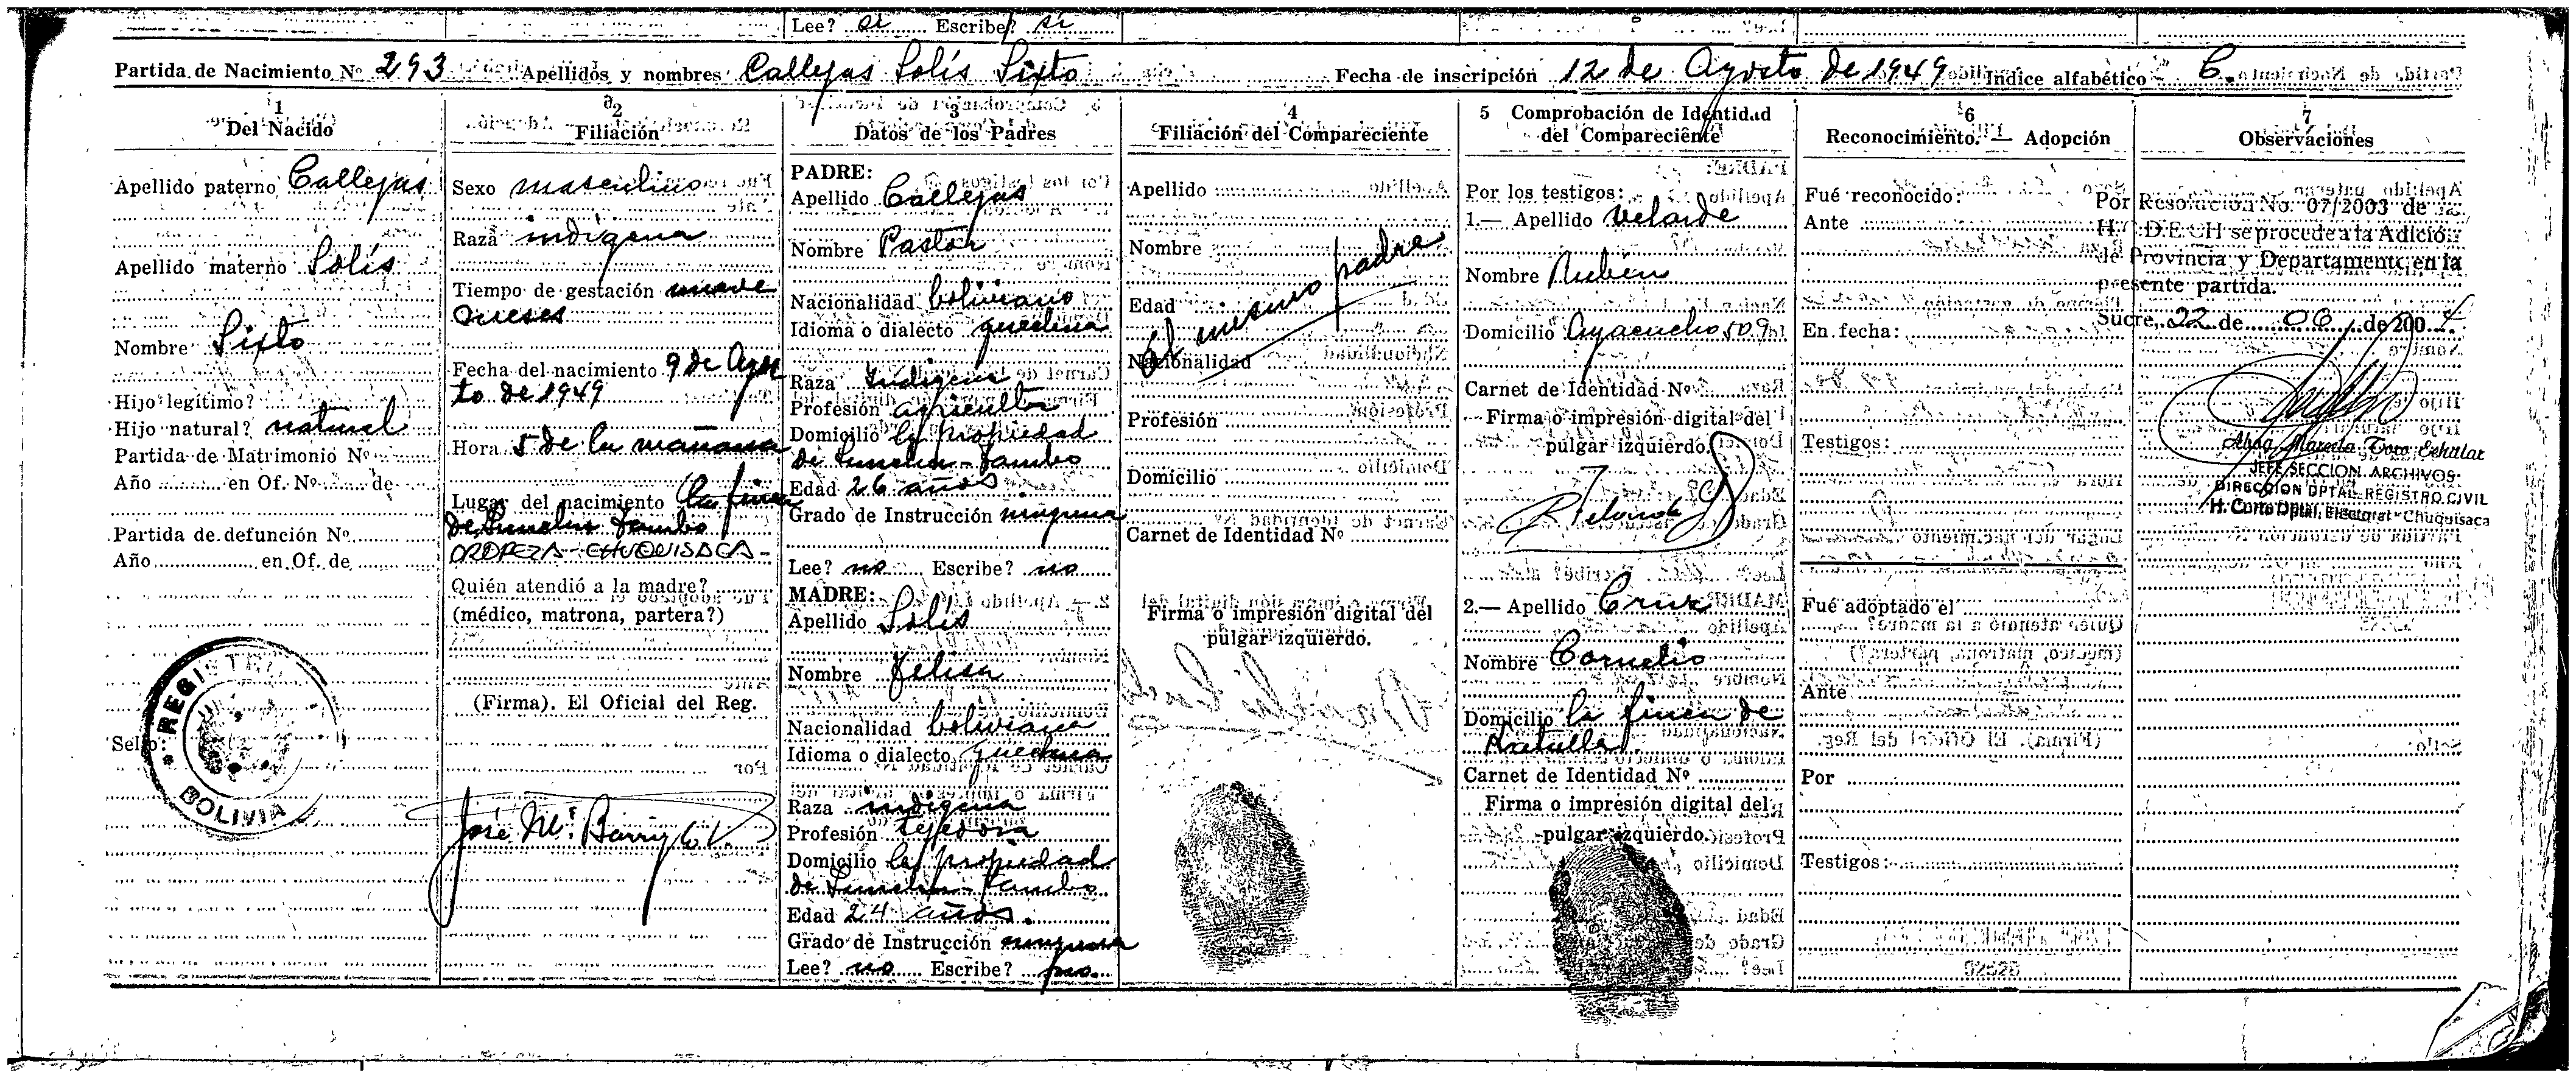 Lee? si Escribe? si
Partida de Nacimiento Nº 293 Apellidos y nombres Callejas Solís Sixto Fecha de inscripción 12 de Agosto de 1949 Indice alfabético C.
1
Del Nacido
Apellido paterno Callejas
Apellido materno Solís
Nombre Sixto
Hijo legítimo?
Hijo natural? natural
Partida de Matrimonio Nº
Año en Of. Nº de
Partida de defunción Nº
Año en Of. de
Sello:
REGISTRO
BOLIVIA
2
Filiación
Sexo masculino
Raza indígena
Tiempo de gestación nueve
meses
Fecha del nacimiento 9 de Agos
to de 1949
Hora 5 de la mañana
Lugar del nacimiento La finca
de Tambo
OROPEZA - CHUQUISACA -
Quién atendió a la madre?
(médico, matrona, partera?)
(Firma). El Oficial del Reg.
3
Datos de los Padres
PADRE:
Apellido Callejas
Nombre Pastor
Nacionalidad boliviano
Idioma o dialecto quechua
Raza Indígena
Profesión agricultor
Domicilio la propiedad
de Tambo
Edad 26 años
Grado de Instrucción ninguna
Lee? no Escribe? no
MADRE:
Apellido Solís
Nombre Felisa
Nacionalidad boliviana
Idioma o dialecto quechua
Raza indígena
Profesión tejedora
Domicilio la propiedad
de Tambo
Edad 24 años.
Grado de Instrucción ninguna
Lee? no Escribe? no.
4
Filiación del Compareciente
Apellido
Nombre
Edad
El mismo padre
Nacionalidad
Profesión
Domicilio
Carnet de Identidad Nº
Firma o impresión digital del
pulgar izquierdo.
5 Comprobación de Identidad
del Compareciente
Por los testigos:
1.— Apellido Velarde
Nombre Rubén
Domicilio Ayacucho 509
Carnet de Identidad Nº
Firma o impresión digital del
pulgar izquierdo.
2.— Apellido Cruz
Nombre Cornelio
Domicilio la finca de
Carnet de Identidad Nº
Firma o impresión digital del
pulgar izquierdo.
6
Reconocimiento. — Adopción
Fué reconocido:
Ante
En fecha:
Testigos:
Fué adoptado el
Ante
Por
Testigos:
7
Observaciones
Por Resolución No. 07/2003 de la
H. C.D.E CH se procede a la Adición
de Provincia y Departamento en la
presente partida.
Sucre, 22 de 06 de 2004.
Abog. Marcela Toro Echalar
JEFE SECCION ARCHIVOS
DIRECCION DPTAL. REGISTRO CIVIL
H. Corte Dptal. Electoral - Chuquisaca